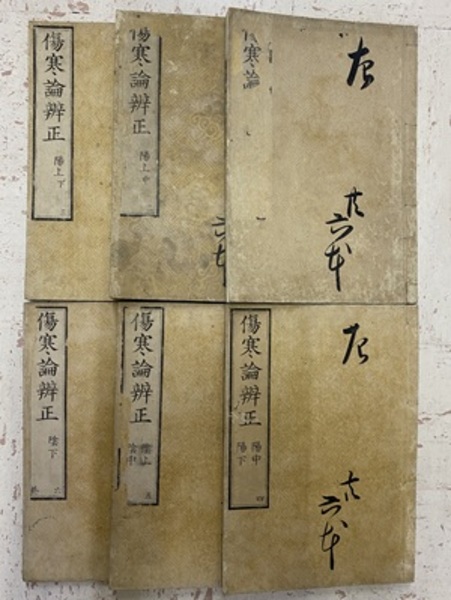 傷寒論辨正
陽上下
三
傷寒論辨正
陽上中
六本
傷寒論
共六本
傷寒論辨正
陰下
傷寒論辨正
陰上
陰中
五
傷寒論辨正
陽中
陽下
四
共六本